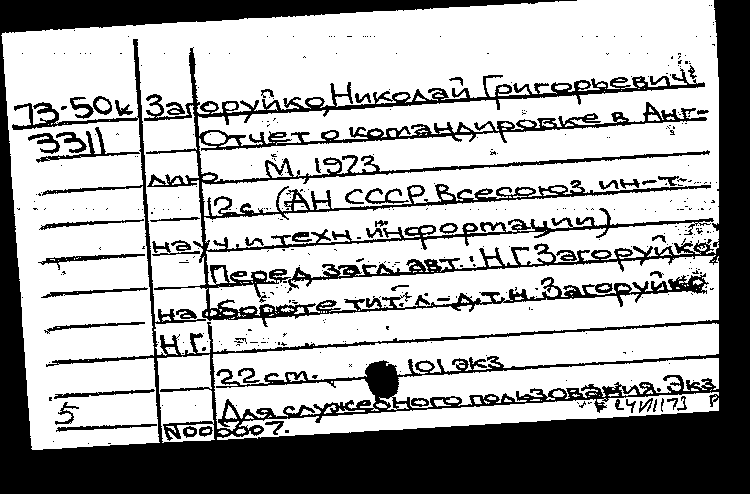 73-50к Загоруйко, Николай Григорьевич.
3311 Отчет о командировке в Анг-
лию. М., 1973
12с. (АН СССР. Всесоюз. ин-т
науч. и техн. информации)
Перед загл. авт.: Н.Г. Загоруйко;
на обороте тит. л. - д.т.н. Загоруйко
Н.Г.
22 см. 101 экз
5 Для служебного пользования. Экз
N000007. 24 VII 73 Р